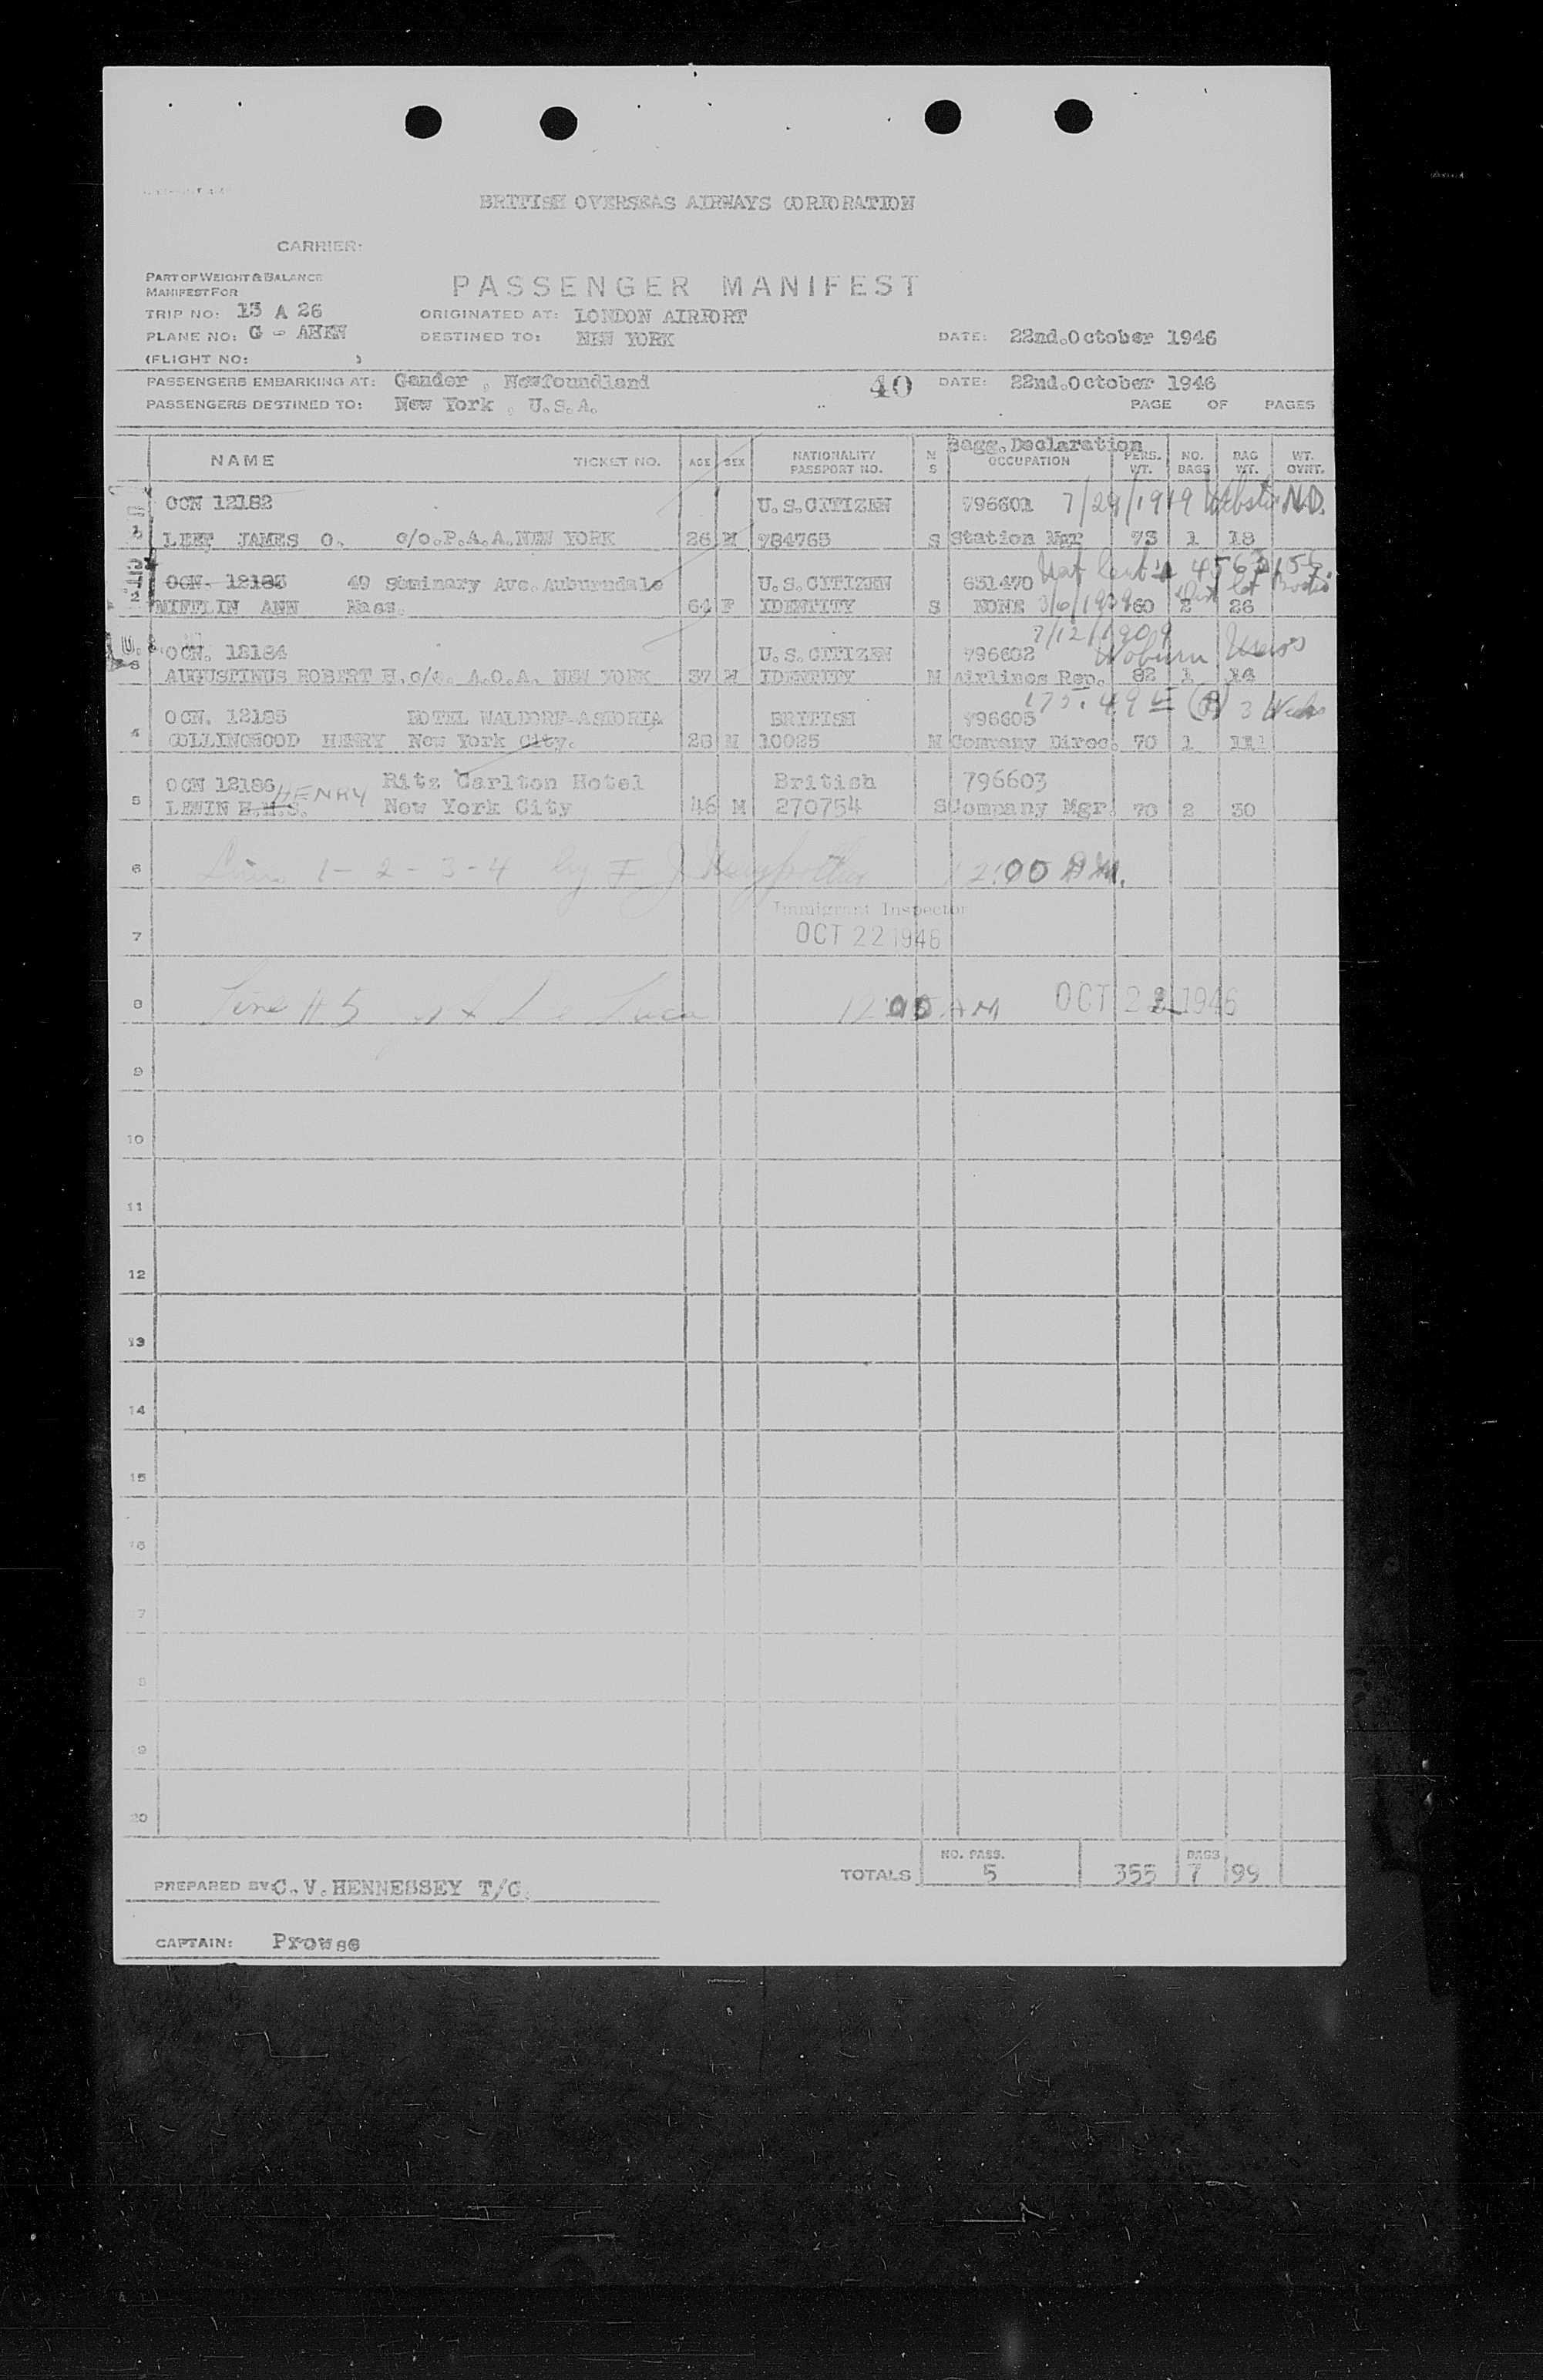 BRITISH OVERSEAS AIRWAYS CORPORATION
CARRIER:
PART OF WEIGHT & BALANCE
MANIFEST FOR
PASSENGER MANIFEST
TRIP NO: 13 A 26 ORIGINATED AT: LONDON AIRPORT
PLANE NO: G - AHEN DESTINED TO: NEW YORK DATE: 22nd.October 1946
(FLIGHT NO: )
PASSENGERS EMBARKING AT: Gander , Newfoundland 40 DATE: 22nd.October 1946
PASSENGERS DESTINED TO: New York , U.S.A. PAGE OF PAGES
Bagg.Declaration
NAME TICKET NO. AGE SEX NATIONALITY PASSPORT NO. M S OCCUPATION PERS. WT. NO. BAGS BAG WT. WT. OVNT.
OCN 12182 U.S.CITIZEN 796601 7/29/1919 Webster N.D.
JAMES O. c/o.P.A.A.NEW YORK 26 M 784765 S Station Mgr 73 1 18
OCN. 12183 49 Seminary Ave.Auburndale U.S.CITIZEN 631470
2 MIFFLIN ANN Mass. 64 F IDENTITY S NONE 3/6/1929 60 2 26
7/12/1909
OCN. 12184 U.S.CITIZEN 796602 Woburn Mass
3 AUGUSTINUS ROBERT H.c/o. A.O.A. NEW YORK 37 M IDENTITY M Airlines Rep. 82 1 14
OCN. 12185 HOTEL WALDORF-ASTORIA BRITISH 796605 3 Weeks
4 COLLINGWOOD HENRY New York City. 28 M 10025 M Company Direc. 70 1 11
OCN 12186 HENRY Ritz Carlton Hotel British 796603
5 LEWIN H.M.S. New York City 46 M 270754 S Company Mgr. 70 2 30
6 Lines 1 - 2 - 3 - 4 by 12:00 AM.
Immigrant Inspector
7 OCT 22 1946
8 Line # 5 12 00 AM OCT 22 1946
9
10
11
12
13
14
15
16
7
8
9
20
TOTALS NO. PASS. 5 355 BAGS 7 99
PREPARED BY: C.V.HENNESSEY T/C.
CAPTAIN: Prowse